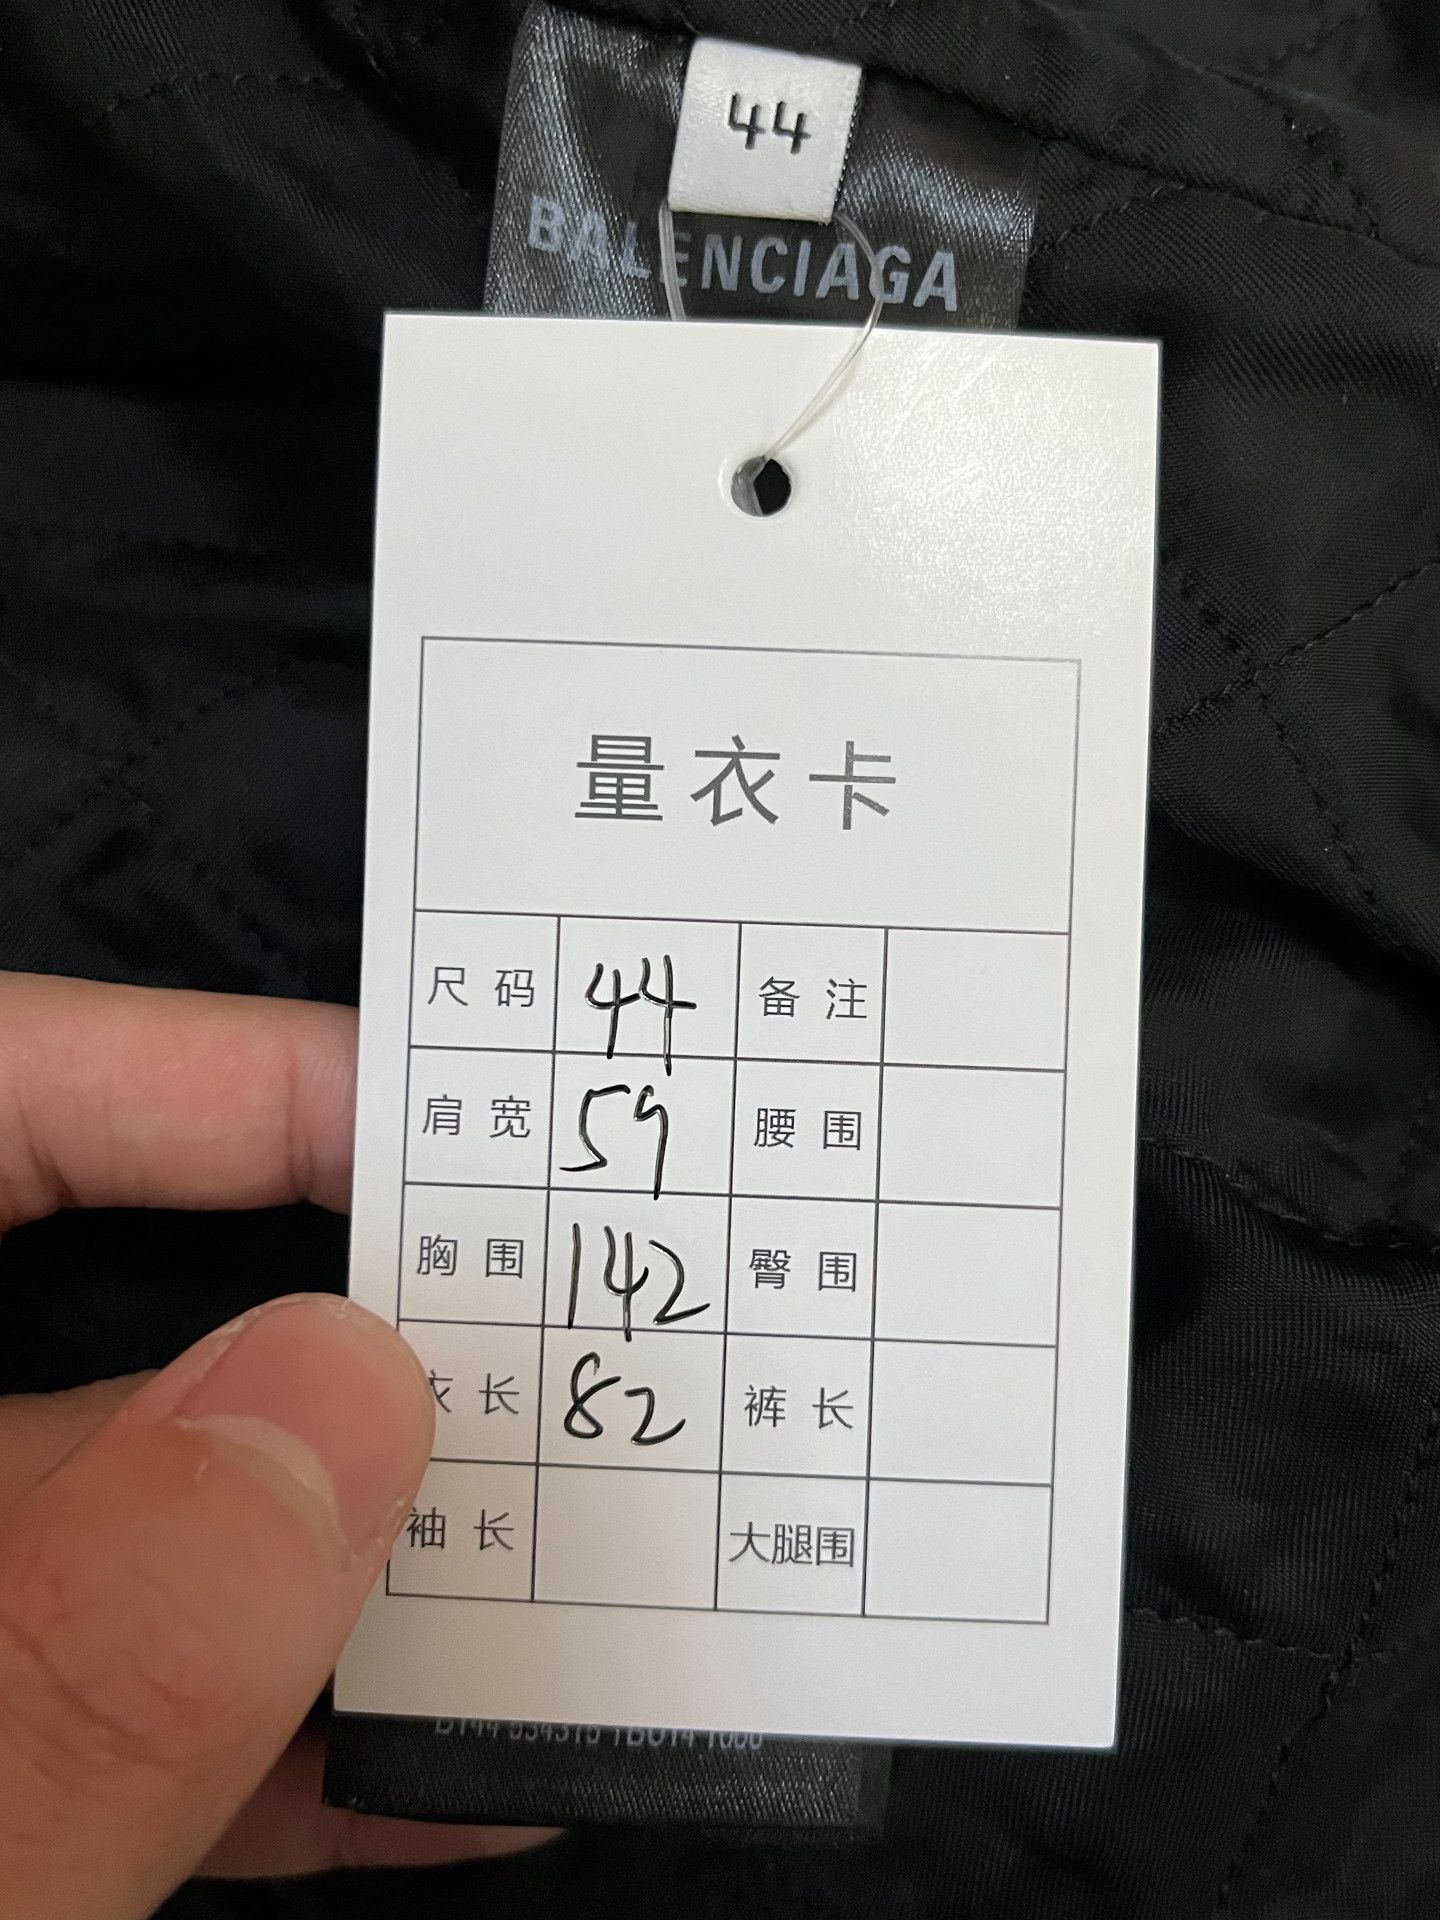 44
BALENCIAGA
量衣卡
尺码 44 备注
肩宽 59 腰围
胸围 142 臀围
衣长 82 裤长
袖长 大腿围